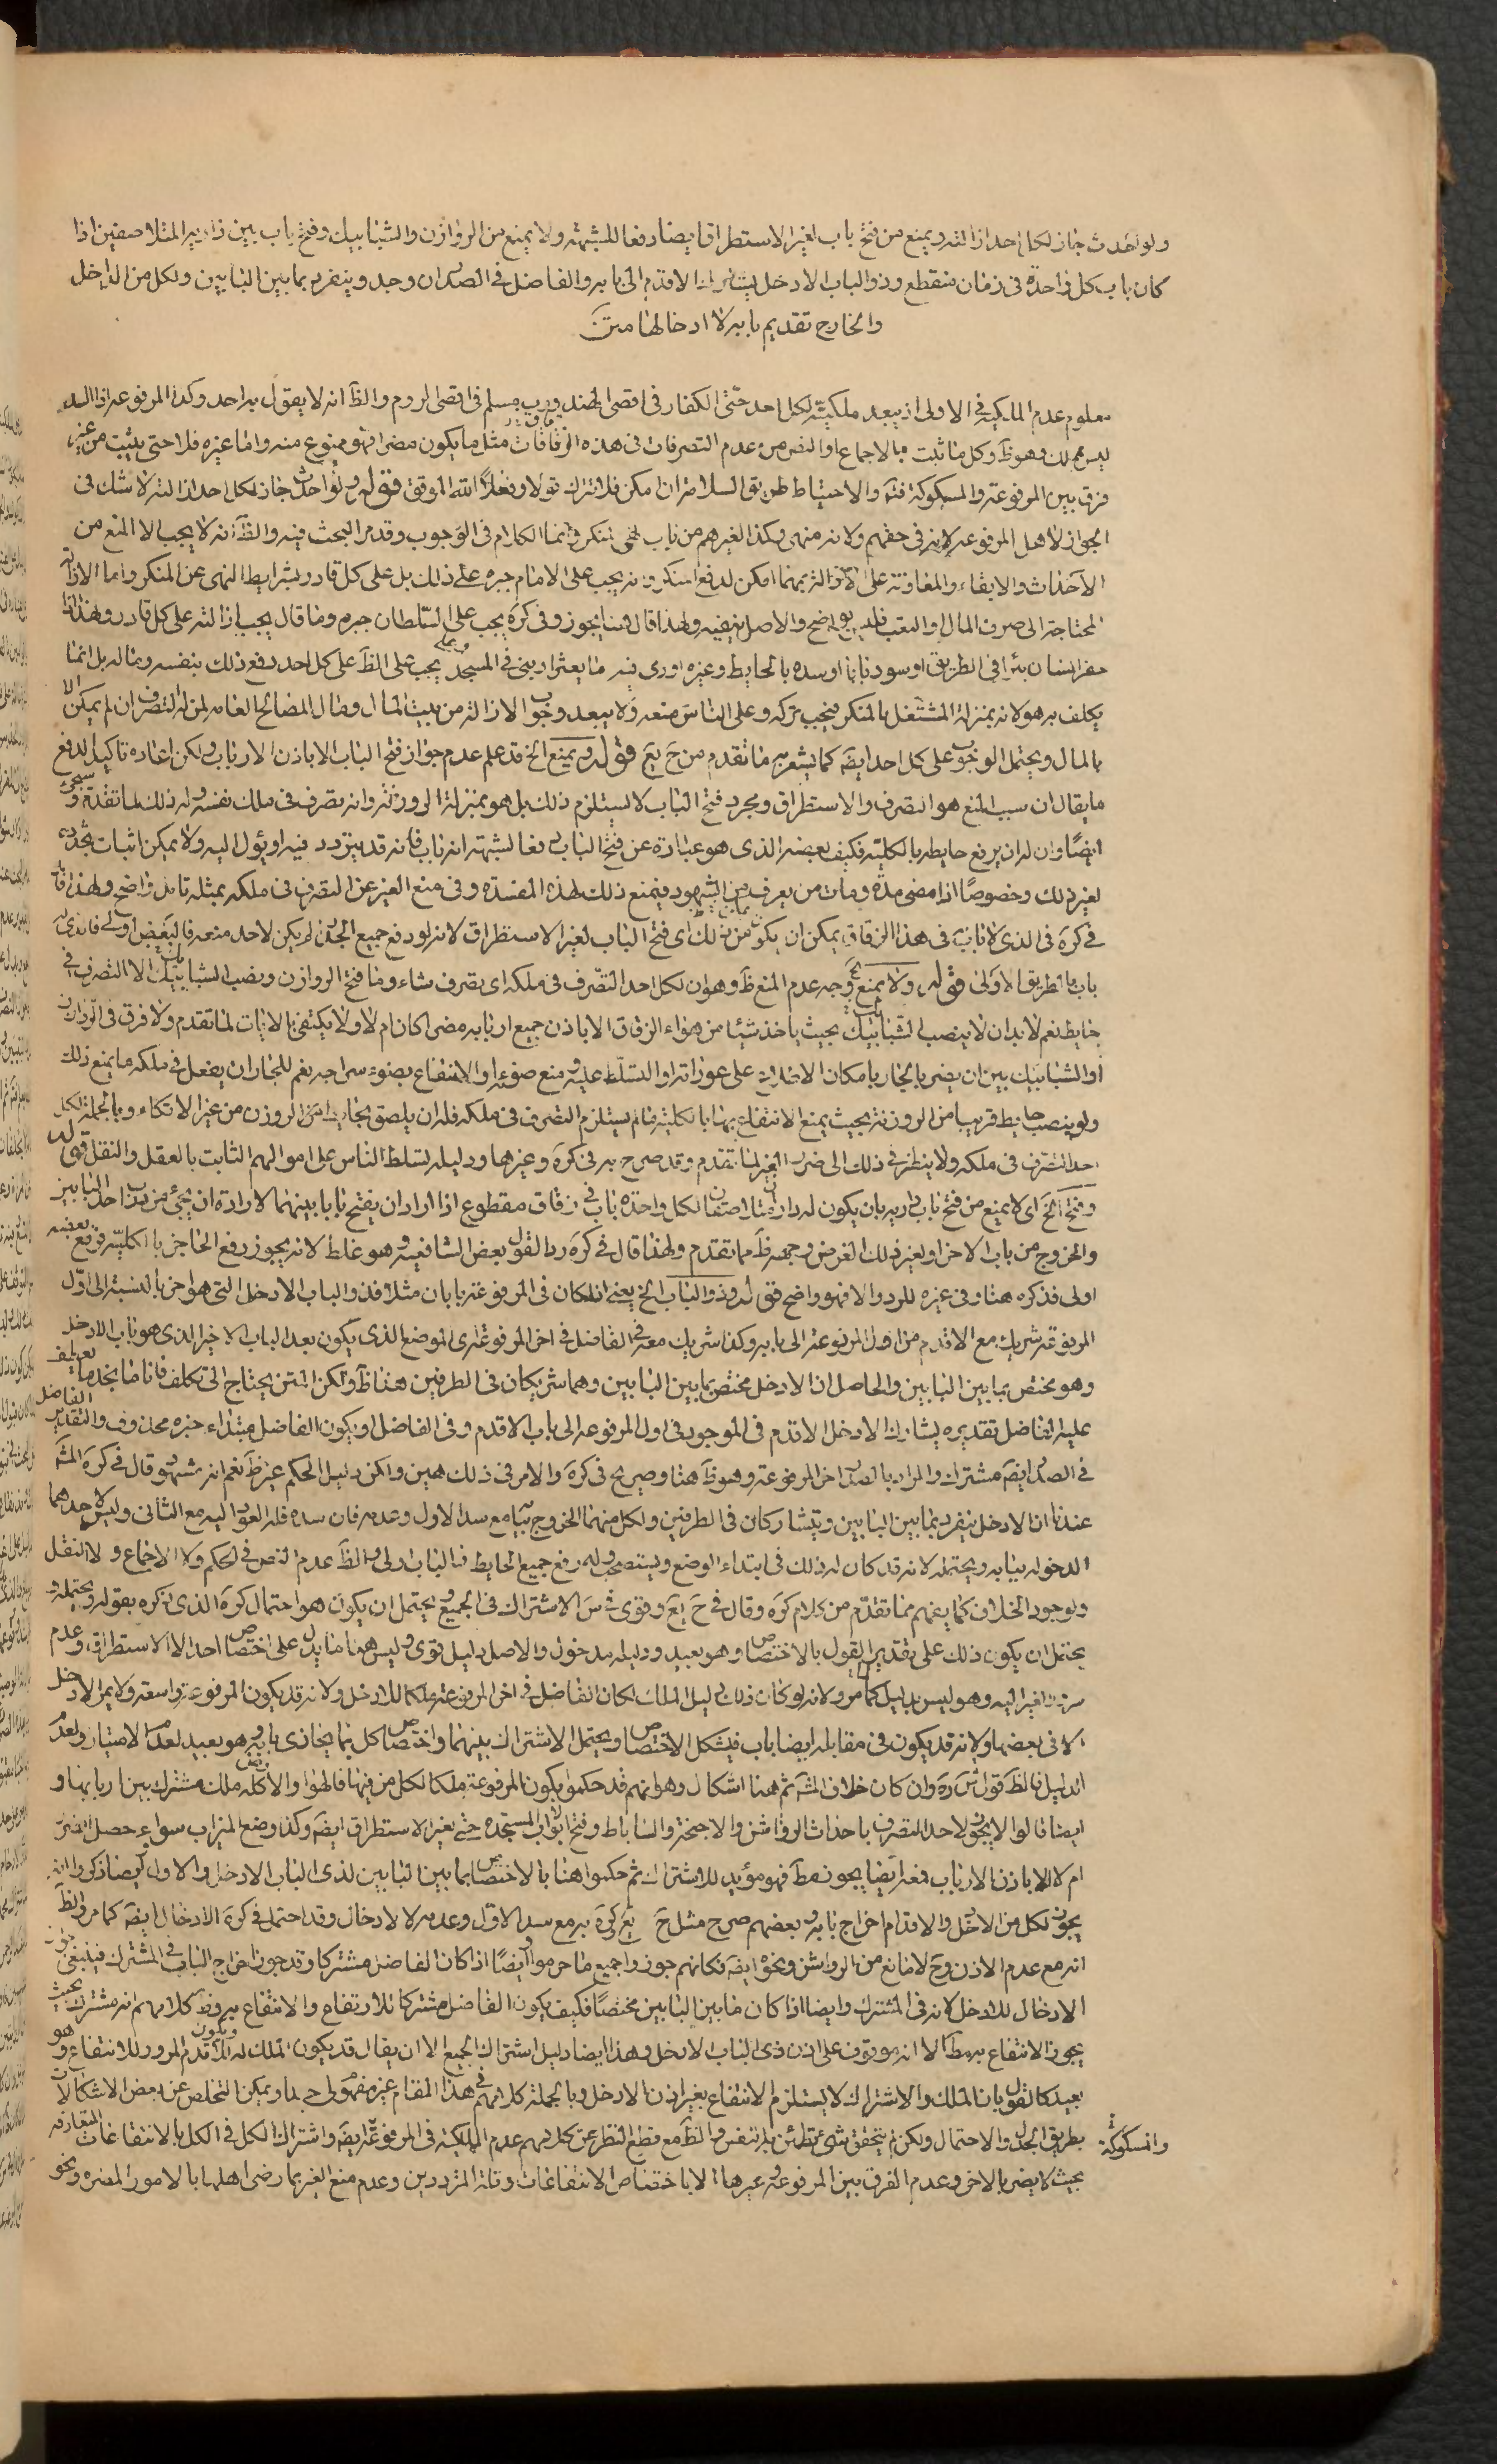 ولو احدث جاز لكل احد ازالته ويمنع من فتح باب لغير الاستطراق ايضا دفعا للشبهة ولا يمنع من الروازن والشبابيك وفتح باب بين داريه المتلاصقين اذا
كان باب كل واحدة فى زقاق منقطع وذو الباب الادخل يشارك الاقدم الى بابه والفاضل فى الصدر ان وجد وينفرد بما بين البابين ولكل من الداخل
والخارج تقديم بابه لا ادخالها متن
معلوم عدم المالكية فى الاولى اذ يبعد ملكيته لكل احد حتى الكفار فى اقصى الهند ورب مسلم فى اقصى الروم والظ انه لا يقول به احد وكذا المرفوعة اذا السد
ليس مملك وهو ظ وكل ما ثبت بالاجماع او النص من عدم التصرفات فى هذه الزقاقات مثل ما يكون مضرا فهو ممنوع منه واما غيره فلا حتى يثبت من غير
فرق بين المرفوعة والمسكوكة فتم والاحتياط طريق السلامة ان امكن فلا تترك قولا وفعلا الله الموفق قوله ولو احدث جاز لكل احد ازالته لا شك فى
الجواز لاهل المرفوعة لانه فى حقهم ولانه منهى وكذا لغيرهم من باب نهى المنكر وانما الكلام فى الوجوب وقد مر البحث فيه والظ انه لا يجب الا المنع من
الاحداث والابقاء والمعاونة على الازالة مهما امكن لدفع المنكر وانه يجب على الامام جبره على ذلك بل على كل قادر بشرايط النهى عن المنكر واما الازالة
المحتاجة الى صرف المال والتعب فليس بواضح والاصل ينفيه ولهذا قال هنا يجوز وفى كره يجب على السلطان جبره وما قال يجب ازالته على كل قادر ولهذا اذا
حفر انسان بئرا فى الطريق او سود بابا او سده بالحايط وغيره او رمى فيه ما يعثر او بنى فى المسجد يجب على الظ على كل احد دفع ذلك بنفسه وماله بل انما
يكلف به هو لانه بمنزلة المشتغل بالمنكر فيجب تركه وعلى الناس منعه ولا يبعد وجوب الازالة من بيت المال ومال المصالح العامة لمن له التصرف ان لم يمكن الا
بالمال ويحتمل الوجوب على كل احد ايضه كما يشعر به ما تقدم من ح يع قوله ويمنع الخ قد علم عدم جواز فتح الباب الا باذن الارباب ولكن اعاده تاكيدا لدفع
ما يقال ان سبب المنع هو التصرف والاستطراق ومجرد فتح الباب لا يستلزم ذلك بل هو بمنزلة الروزنة وانه تصرف فى ملك نفسه وله ذلك لما تقدم وسيجئ
ايضا وان له ان يرفع حايطه بالكلية فكيف بعضه الذى هو عبارة عن فتح الباب دفعا لشبهة انه باب فانه قد يتردد فيه او يؤل اليه ولا يمكن اثبات تجدده
لغير ذلك وخصوصا اذا مضى مدة ومات من يعرف من الشهود فيمنع ذلك لهذه المفسدة وفى منع الغير عن التصرف فى ملكه بمثله تامل واضح ولهذا قال
فى كره فى الذى لا باب له فى هذا الزقاق يمكن ان يكون من ذلك اى فتح الباب لغير الاستطراق لانه لو دفع جميع الجدار لم يكن لاحد منعه فالبعض اولى فاذن
باب بالطريق الاولى قوله ولا يمنع الخ وجه عدم المنع ظ وهو ان لكل احد التصرف فى ملكه اى تصرف شاء وما فتح الروازن ونصب الشبابيك الا التصرف فى
حايطه نعم لا بد ان لا ينصب الشبابيك بحيث ياخذ شيئا من هواء الزقاق الا باذن جميع اربابه مضى اكان ام لا ولا يكتفى بالاثبات لما تقدم ولا فرق فى الروازن
او الشبابيك بين ان يضر بالجار بامكان الاطلاع على عوراته او التسلط عليه ومنع ضوءه او الانتفاع بضوء سراجه نعم للجار ان يفعل فى ملكه ما يمنع ذلك
ولو بنصب حايط قريبا من الروزنة بحيث يمنع الانتفاع بها بالكلية ما لم يستلزم التصرف فى ملكه فله ان يلصق بحايط الروزن من غير الاتكاء وبالجملة لكل
احد التصرف فى ملكه ولا ينظر فى ذلك الى ضرر الغير لما تقدم وقد صرح به فى كره وغيرها ودليله تسلط الناس على اموالهم الثابت بالعقل والنقل قوله
وفتح الخ اى لا يمنع من فتح باب داريه بان يكون له داران متلاصقان لكل واحدة باب فى زقاق مقطوع اذا اراد ان يفتح بابا بينهما لارادة ان يجئ من باب احد البابين
والخروج من باب الاخر او لغير ذلك الغرض وجهه ظ مما تقدم ولهذا قال فى كره ردا لقول بعض الشافعية وهو غلط لانه يجوز رفع الحاجز بالكلية فرفع بعضه
اولى فذكره هنا وفى غيره للرد والا فهو واضح قوله وذو الباب الخ يعنى اذا كان فى المرفوعة بابان مثلا فذو الباب الادخل التى هو اخر بالنسبة الى اول
المرفوعة شريك مع الاقدم من اول المرفوعة الى بابه وكذا شريك معه فى الفاضل فى اخر المرفوعة اى الموضع الذى يكون بعد الباب الاخير الذى هو باب الادخل
وهو مختص بما بين البابين والحاصل ان الادخل مختص بما بين البابين وهما شريكان فى الطرفين هذا ظ ولكن المتن يحتاج الى تكلف فانا ما نجد ما يعطف
عليه الفاضل تقديره يشارك الادخل الاقدم فى الموجود فى اول المرفوعة الى باب الاقدم وفى الفاضل او يكون الفاضل مبتداء خبره محذوف والتقدير الفاضل
فى الصدر ايضه مشترك والمراد بالصدر اخر المرفوعة وهو ظ هنا وصريح فى كره والامر فى ذلك هين ولكن دليل الحكم غير ظ نعم انه مشهور وقال فى كره المش
عندنا ان الادخل ينفرد بما بين البابين ويتشاركان فى الطرفين ولكل منهما الخروج ببابه مع سد الاول وعدمه فان سده فله العود اليه مع الثانى وليس لاحدهما
الدخول ببابه ويحتمله لانه قد كان له ذلك فى ابتداء الوضع ويستصحب وله رفع جميع الحايط فالباب اولى والظ عدم النص فى الحكم ولا الاجماع ولا النقل
ولوجود الخلاف كما يفهم مما تقدم من كلام كره وقال فى ح يع وقوى فى س الاشتراك فى الجميع ويحتمل ان يكون هو احتمال كره الذى ذكره بقوله ويحتمله و
يحتمل ان يكون ذلك على تقدير القول بالاختصاص وهو بعيد ودليله مدخول والاصل دليل قوى وليس هنا ما يدل على اختصاص احد الا الاستطراق وعدم
الغير اليه وهو ليس بدليل كما مر ولانه لو كان ذلك دليل الملك لكان الفاضل فى اخر المرفوعة ملكا للادخل ولانه قد يكون المرفوعة واسعة ولا يمر الادخل
الا فى بعضها ولانه قد يكون فى مقابله ايضا باب فيشكل الاختصاص ويحتمل الاشتراك بينهما واختصاص كل بما يحاذى بابه وهو بعيد لعدم الامتياز ولعدم
الدليل فالظ قول س ره وان كان خلاف المش ثم هنا اشكال وهو انهم قد حكموا بكون المرفوعة ملكا لكل من فيها فالهواء والارض كله ملك مشترك بين اربابها و
ايضا قالوا لا يجوز لاحد التصرف باحداث الرواشن والاجنحة والساباط وفتح ابواب المستجدة حتى لغير الاستطراق ايضه وكذا وضع الميزاب سواء حصل الضرر
ام لا الا باذن الارباب فمعه ايضا يجوز مط فهو مؤيد للاشتراك ثم حكموا هنا بالاختصاص بما بين البابين لذى الباب الادخل والاول ايضا ذكروا انه
يجوز لكل من الادخل والاقدم اخراج بابه وبعضهم صرح مثل ح يع كره به مع سد الاول وعدمه لا الادخال وقد احتمل فى كره الادخال ايضه كما مر والظ
انه مع عدم الاذن وح لا مانع من الرواشن ونحوه ايضه فكانهم جوزوا جميع ما حرموا وايضا اذا كان الفاضل مشتركا وقد جوز اخراج الباب فى المشترك فينبغى جواز
الادخال للادخل لانه فى المشترك وايضا اذا كان ما بين البابين مختصا فكيف يكون الفاضل مشتركا للارتفاع والانتفاع به وظ كلامهم انه مشترك بحيث
يجوز الانتفاع به مطلقا لا انه موقوف على اذن ذى الباب الادخل وهذا ايضا دليل اشتراك الجميع الا ان يقال قد يكون الملك له ويكون للاقدم المرور للانتفاع وهو
بعيد كالقول بان الملك والاشتراك لا يستلزم الانتفاع بغير اذن الادخل وبالجملة كلامهم فى هذا المقام غير مفهوم لى جيدا ويمكن التخلص عن بعض الاشكالات
بطريق الجدل والاحتمال ولكن لم يتحقق شئ تطمئن به النفس والظ مع قطع النظر عن كلامهم عدم الملكية فى المرفوعة ايضه واشتراك الكل فى الكل بالانتفاعات المتعارفة
والمسكوكة
بحيث لا يضر بالاخر وعدم الفرق بين المرفوعة وغيرها الا باختصاص الانتفاعات وقلة المترددين وعدم منع الغير بما رضى اهلها بالامور المضره ونحو